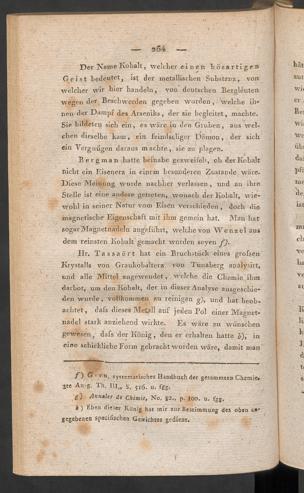 — 264 —
Der Name Kobalt, welcher einen bösartigen
Geist bedeutet, ist der metallischen Substanz, von
welcher wir hier handeln, von deutschen Bergleuten
wegen der Beschwerden gegeben worden, welche ih-
nen der Dampf des Arseniks, der sie begleitet, machte.
Sie bildeten sich ein, es wäre in den Gruben, aus wel-
chen dieselbe kam, ein feindseliger Dämon, der sich
ein Vergnügen daraus machte, sie zu plagen.
Bergman hatte beinahe gezweifelt, ob der Kobalt
nicht ein Eisenerz in einem besonderen Zustande wäre.
Diese Meinung wurde nachher verlassen, und an ihre
Stelle ist eine andere getreten, wonach der Kobalt, wie-
wohl in seiner Natur vom Eisen verschieden, doch die
magnetische Eigenschaft mit ihm gemein hat. Man hat
sogar Magnetnadeln angeführt, welche von Wenzel aus
dem reinsten Kobalt gemacht worden seyen f).
Hr. Tassaërt hat ein Bruchstück eines großen
Krystalls von Graukobalterz von Tunaberg analysirt,
und alle Mittel angewendet, welche die Chemie ihm
darbot, um den Kobalt, der in dieser Analyse ausgeschie-
den wurde, vollkommen zu reinigen g), und hat beob-
achtet, daß dieses Metall auf jeden Pol einer Magnet-
nadel stark anziehend wirkte. Es wäre zu wünschen
gewesen, daß der König, den er erhalten hatte h), in
eine schickliche Form gebracht worden wäre, damit man
f) Gren, systematisches Handbuch der gesammten Chemie,
2te Ausg. Th. III., S. 516. u. fgg.
g) Annales de Chimie, No. 82., p. 100. u. fgg.
h) Eben dieser König hat mir zur Bestimmung des oben an-
gegebenen specifischen Gewichtes gedient.